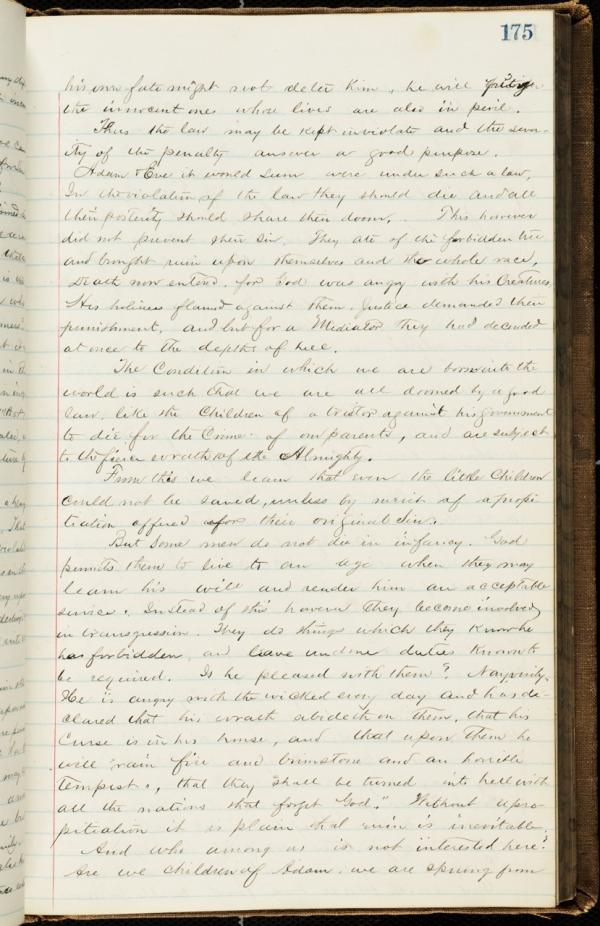 175
his own fate might not deter him, he will
the innocent ones whose lives are also in peril.
Thus the law may be kept inviolate and the sever-
ity of the penalty answer a good purpose.
Adam & Eve it would seem were under such a law,
In the violation of the law they should die and all
their posterity should share their doom. This however
did not prevent their sin. They ate of the forbidden tree
and brought ruin upon themselves and the whole race.
Death now entered, for God was angry with his Creatures,
His holiness flamed against them. Justice demanded their
punishment, and but for a Mediator they had decended
at once to the depths of hell.
The Condition in which we are born into the
world is such that we are all doomed by a good
law, like the Children of a traitor against his government
to die for the Crime of our parents, and are subject
to the fierce wrath of the Almighty.
From this we learn that even the little Children
could not be saved, unless by merit of a propi
tiation offered for their original sin.
But some men do not die in infancy. God
permits them to live to an age when they may
learn his will and render him an acceptable
service. Instead of this however they become involved
in transgression. They do things which they know he
has forbidden, and leave undone duties known to
be required. Is he pleased with them? Nay verily.
He is angry with the wicked every day and has de-
clared that his wrath abideth on them, that his
Curse is in his house, and that upon them he
will "rain fire and brimstone and an horrible
tempest", that they "shall be turned into hell with
all the nations that forget God." Without a pro-
pitiation it is plain that ruin is inevitable.
And who among us is not interested here?
Are we children of Adam. we are sprung from